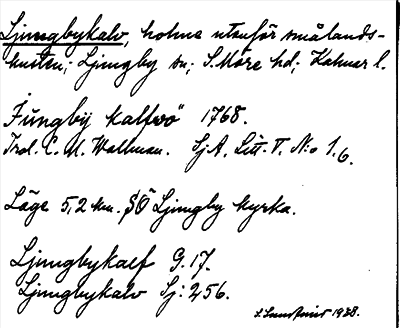 Ljungbykalv, holme utanför smålands-
kusten; Ljungby sn; S. Möre hd; Kalmar l.
Jüngbij kalfwö" 1768.
Trol. C. M. Wallman. Sj A. Litt. T. N:o 1.6.
Läge 5,2 km. SÖ Ljungby kyrka.
Ljungbykalf G. 17.
Ljungbykalv Sj: 256.
1928.